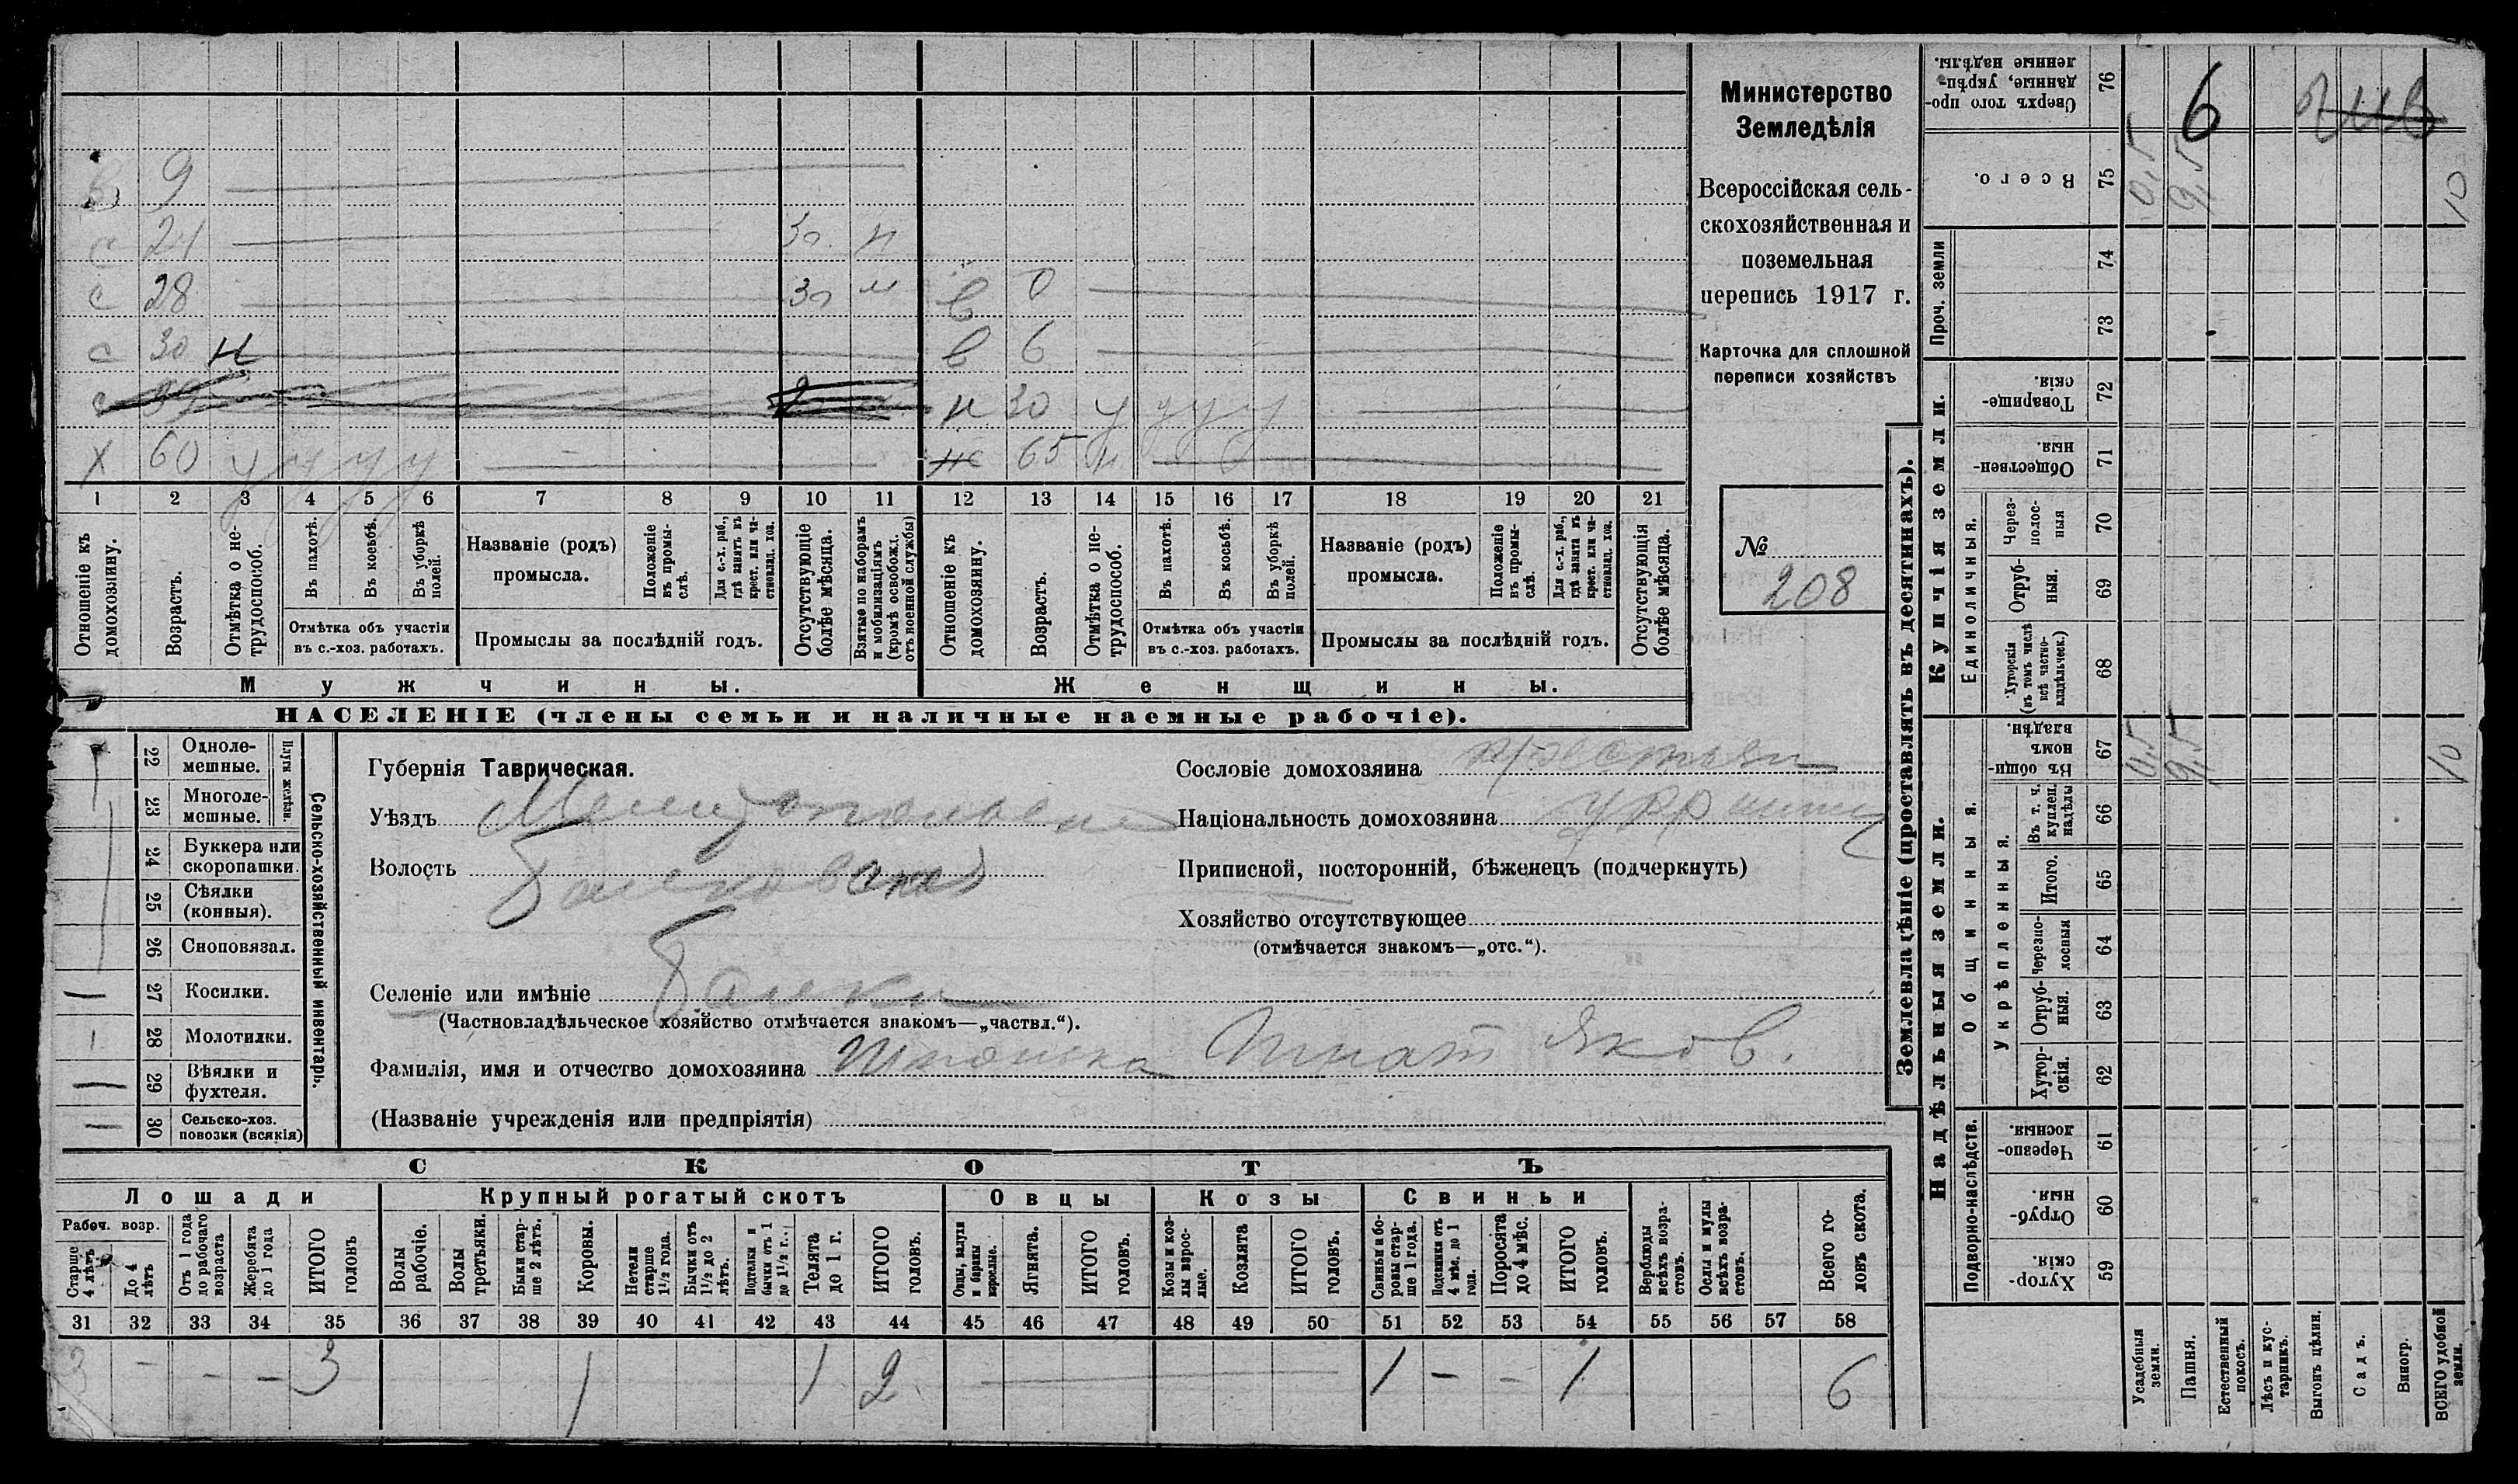 в 9
с 24 Зо. н
с 28 Зо
в 0
с 30 н
в 6
н 30 у у у у
х 60 у у у у
же 65 н
1 2 3 4 5 6 7 8 9 10 11 12 13 14 15 16 17 18 19 20 21
Отношеніе къ домохозяину.
Возрастъ.
Отмѣтка о не-
трудоспособ.
Въ пахотѣ.
Въ косьбѣ.
Въ уборкѣ полей.
Отмѣтка объ участіи
въ с.-хоз. работахъ.
Названіе (родъ)
промысла.
Положеніе
въ промы-
слѣ.
Для с.-х. раб.,
гдѣ занятъ въ
крест. или ча-
стновлад. хоз.
Промыслы за послѣдній годъ.
Отсутствующіе
болѣе мѣсяца.
Взятые по наборамъ
и мобилизаціямъ
(кромѣ освобожд.
отъ военной службы)
Отношеніе къ
домохозяину.
Возрастъ.
Отмѣтка о не-
трудоспособ.
Въ пахотѣ.
Въ косьбѣ.
Въ уборкѣ
полей.
Отмѣтка объ участіи
въ с.-хоз. работахъ.
Названіе (родъ)
промысла.
Положеніе
въ промы-
слѣ.
Для с.-х. раб.,
гдѣ занята въ
крест. или ча-
стновлад. хоз.
Промыслы за послѣдній годъ.
Отсутствующія
болѣе мѣсяца.
Мужчины.
Женщины.
НАСЕЛЕНІЕ (члены семьи и наличные наемные рабочіе).
Министерство
Земледѣлія
Всероссійская сель-
скохозяйственная и
поземельная
перепись 1917 г.
Карточка для сплошной
переписи хозяйствъ
№
208
22 Одноле-
мешные.
23 Многоле-
мешные.
Плуги желѣзн.
24 Буккера или
скоропашки.
25 Сѣялки
(конныя).
26 Сноповязал.
27 Косилки.
28 Молотилки.
29 Вѣялки и
фухтеля.
30 Сельско-хоз.
повозки (всякія)
Сельско-хозяйственный инвентарь.
Губернія Таврическая.
Уѣздъ Мелитопольск
Волость Балковская
Селеніе или имѣніе Балки
(Частновладѣльческое хозяйство отмѣчается знакомъ—„частвл.“).
Фамилія, имя и отчество домохозяина Шпонька Игнат Яков.
(Названіе учрежденія или предпріятія)
Сословіе домохозяина крестьян
Національность домохозяина
Приписной, посторонній, бѣженецъ (подчеркнуть)
Хозяйство отсутствующее
(отмѣчается знакомъ—„отс.“).
СКОТЪ
Лошади
Рабоч. возр.
Старше
4 лѣтъ
До 4
лѣтъ
Отъ 1 года
до рабочаго
возраста
Жеребята
до 1 года
ИТОГО
головъ
Крупный рогатый скотъ
Волы
рабочіе.
Волы
третьяки.
Быки стар-
ше 2 лѣтъ.
Коровы.
Нетели
старше
1½ года.
Бычки отъ
1½ до 2
лѣтъ.
Подтелки и
бычки отъ 1
до 1½ г.
Телята
до 1 г.
ИТОГО
головъ.
Овцы
Овцы, валухи
и бараны
взрослые.
Ягнята.
ИТОГО
головъ.
Козы
Козы и коз-
лы взрос-
лые.
Козлята
ИТОГО
головъ.
Свиньи
Свиньи и бо-
ровы стар-
ше 1 года.
Подсвинки отъ
4 мѣс. до 1
года.
Поросята
до 4 мѣс.
ИТОГО
головъ.
Верблюды
всѣхъ возра-
стовъ.
Ослы и мулы
всѣхъ возра-
стовъ.
Всего го-
ловъ скота.
31 32 33 34 35 36 37 38 39 40 41 42 43 44 45 46 47 48 49 50 51 52 53 54 55 56 57 58
3 - - - 3 1 1 2 1 - - 1 6
Землевладѣніе (проставлять въ десятинахъ).
Сверхъ того про-
данные, укрѣп-
ленные надѣлы.
76
6
Всего.
75
0,5 9,5 10
Купчія земли.
Проч. земли
74
73
Товарище-
скія.
72
Обществен-
ныя.
71
Единоличныя.
Через-
полос-
ныя
70
Отруб-
ныя.
69
Хуторскія
(въ томъ числѣ
всѣ частно-
владѣльческ.)
68
Надѣльныя земли.
Общинныя.
Въ общин-
номъ
владѣн.
67
0,5 9,5 10
Укрѣпленныя.
Въ т. ч.
куплен.
надѣлы
66
Итого.
65
Черезпо-
лосныя
64
Отруб-
ныя.
63
Хутор-
скія.
62
Подворно-наслѣдств.
Черезпо-
лосныя.
61
Отруб-
ныя.
60
Хутор-
скія.
59
Усадебныя
земли.
Пашня.
Естественный
покосъ.
Лѣсъ и кус-
тарникъ.
Выгонъ цѣлин.
Садъ.
Виногр.
ВСЕГО удобной
земли.